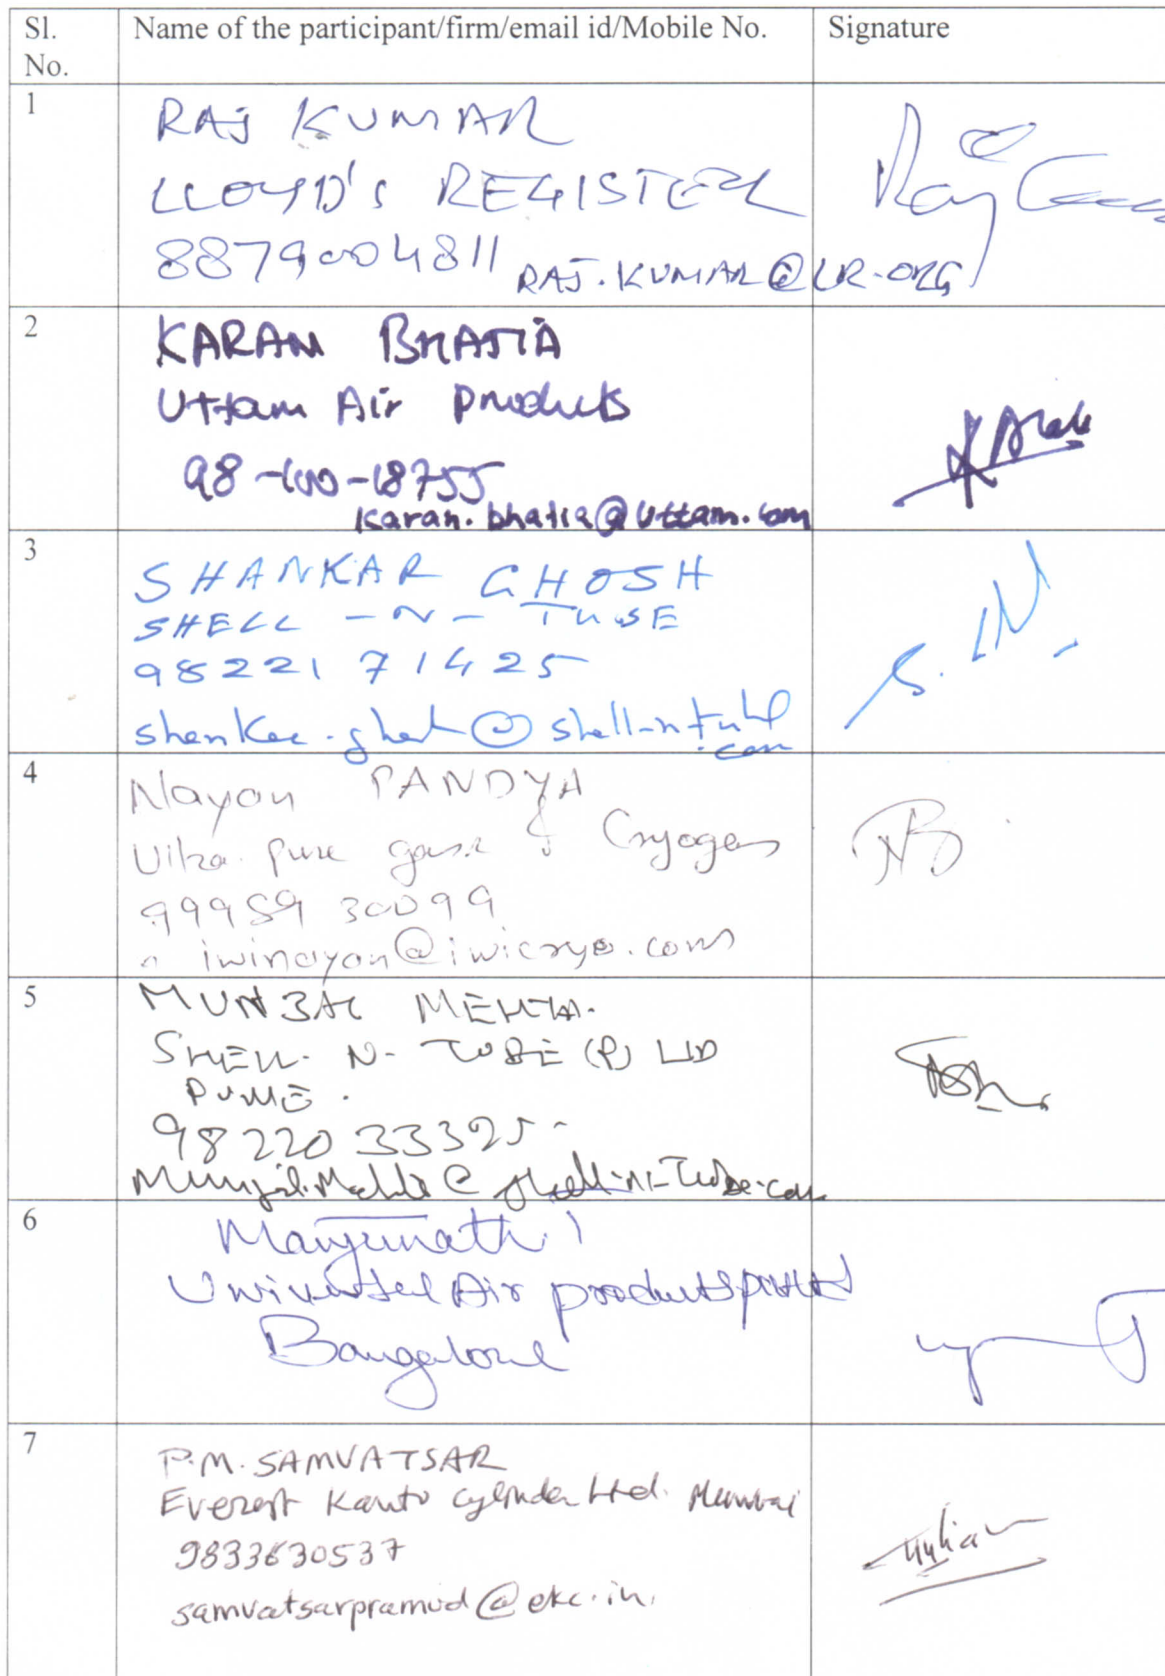 Sl. No. Name of the participant/firm/email id/Mobile No. Signature
1
RAJ KUMAR
LLOYD's REGISTER
8879004811 RAJ.KUMAR@LR.ORG
2
KARAN BHATIA
Uttam Air Products
98-100-18755
karan.bhatia@uttam.com
3
SHANKAR GHOSH
SHELL - N - TUBE
98221 71425
@shell-n-tube.com
4
Nayan PANDYA
pure gases & Cryogens
99989 30099
iwinayan@iwicryo.com
5
MUNJAL MEHTA.
SHELL-N-TUBE (P) LTD
PUNE.
98220 33325-
Munjal.Mehta@shell-N-Tube.com
6
Manjunath
Universal Air products
Bangalore
7
P.M. SAMVATSAR
Everest Kanto Cylinder Ltd. Mumbai
9833630537
samvatsarpramod@ekc.in.